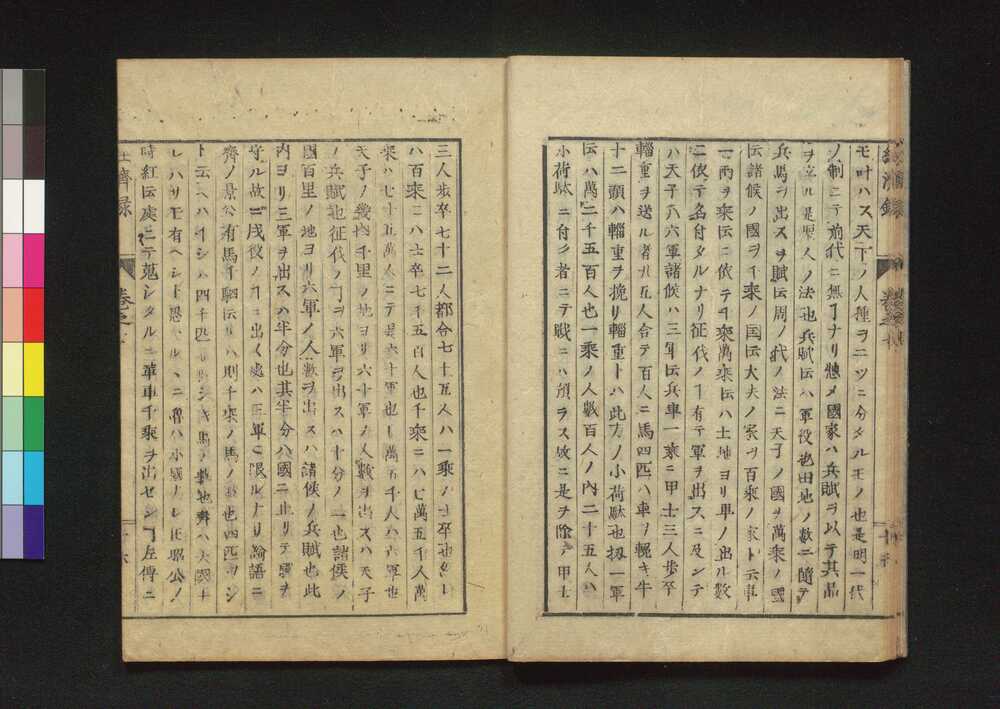 モ叶ハス天下ノ人種ヲニツニ分タルモノ也是明一代
ノ制ニテ前代ニ無了ナリ惣メ國家ハ兵賦ヲ以テ其品
ヲ立ル是聖人ノ法也兵賦云ハ軍役也田地ノ数ニ隨テ
兵馬ヲ出スヲ賦云周ノ代ノ法ニ天子ノ國ヲ萬乘ノ國
云諸候ノ國ヲ千乘ノ国云大夫ノ家ヲ百乘ノ家ト云車
一兩ヲ乘云ニ依テ千乘萬乘云ハ土地ヨリ車ノ出ル数
ニ依テ名付タルナリ征伐ノ有テ軍ヲ出スニ及ンテ
ハ天子ハ六軍諸候ハ三軍云兵車一乘ニ甲士三人歩卒
輜重ヲ送ル者廿五人合テ百人ニ馬四匹ハ車ヲ輓キ牛
十二頭ハ輜重ヲ挽リ輜重トハ此方ノ小荷駄也扨一軍
云ハ萬二千五百人也一乘ノ人數百人ノ内二十五人ハ
小荷駄ニ付ク者ニテ戰ニハ預ラス故ニ是ヲ除テ甲士
三人歩卒七十二人都合七十五人ハ一乘ノ士卒也
ハ百乘ニハ士卒七千五百人也千乘ニハ七萬五千人萬
乘ハ七十五萬人ニテ是六十軍也七萬五千人ハ六軍也
天子ノ畿内千里ノ地ヨリ六十軍ノ人數ヲ出スハ天子
ノ兵賦也征伐ノ六軍ヲ出スハ十分ノ一也諸候ノ
國百里ノ地ヨリ六軍ノ人數ヲ出スハ諸候ノ兵賦也此
内ヨリ三軍ヲ出スハ半分也其半分ハ國ニ止リテ國ヲ
守ル故ニ戍役ノニ出ル處ハ三軍ニ限ルナリ論語ニ
齊ノ景公有馬千駟云リハ則千乘ノ馬ノ也四匹ヲシ
ト云ヘハイシハ四千匹シキ馬ノ數也齊ハ大國ナ
レハサモ有ヘシト思ハルルニ魯ハ小國ナレ共昭公ノ
時紅云處ニテ蒐シタルニ革車千乘ヲ出セシ左傳ニ